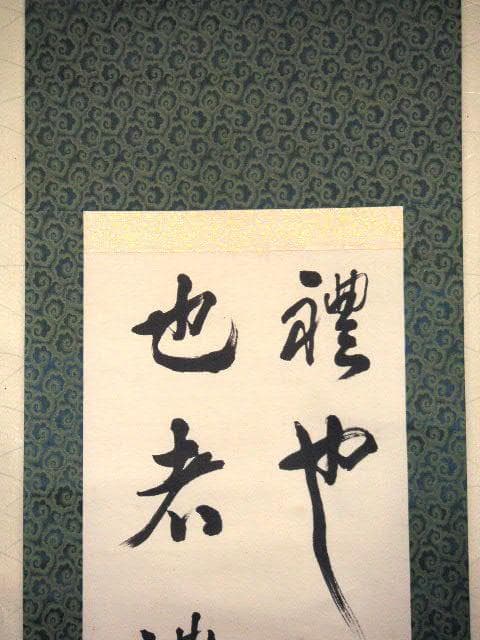 禮也
也者